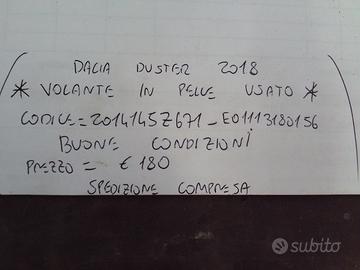 DACIA DUSTER 2018
* VOLANTE IN PELLE USATO *
CODICE = 20141457671 - E01113180156
BUONE CONDIZIONI
PREZZO = € 180
SPEDIZIONE COMPRESA
subito